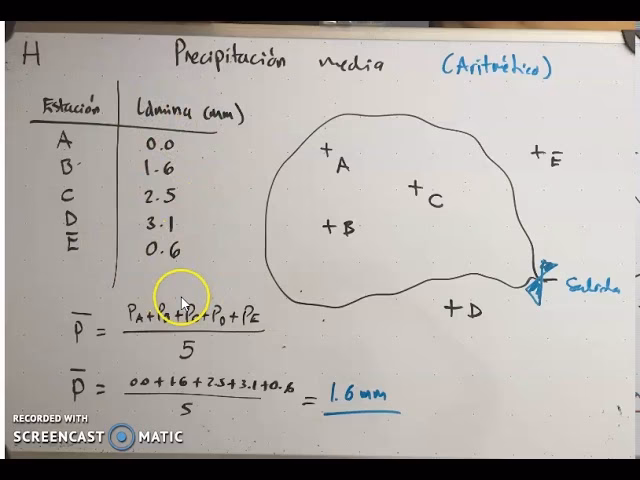 H
Precipitación media (Aritmético)
Estación Lámina (mm)
A 0.0
B 1.6
C 2.5
D 3.1
E 0.6
+ A
+ B
+ C
+ E
+ D
Salida
P̅ = PA + PB + PC + PD + PE
5
P̅ = 0.0 + 1.6 + 2.5 + 3.1 + 0.6 = 1.6 mm
5
RECORDED WITH
SCREENCAST MATIC